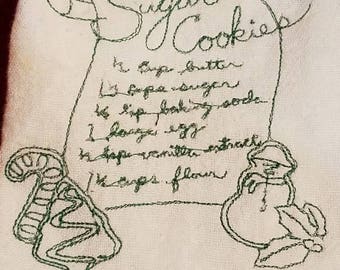 Sugar
Cookies
½ cup butter
cups sugar
tsp baking soda
1 large egg
tsp vanilla extract
cups flour